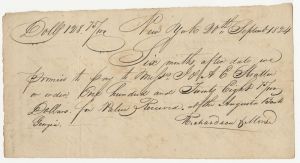 Dolls 128 75/100 New York 20th Septembr 1824
Six months after date we
promise to pay to Messrs J & A E
or order One hundred and Twenty Eight 75/100
Dollars for Value Received at the Augusta Bank
Georgia
Richardson &